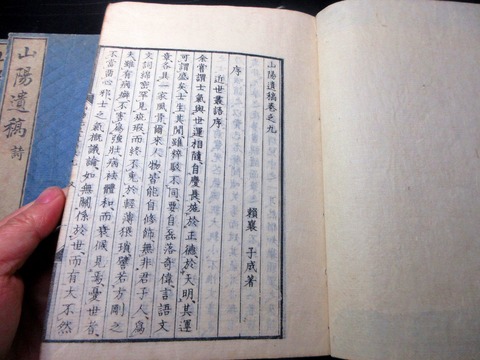 山陽遺稿卷之九
賴襄 子成著
序
近世叢語序
余嘗謂士氣與世運相隨自慶長施於正德於天明其運
可謂盛矣士生其間雖醇駁不同要自磊落奇偉言語文
章各具一家風骨爾來人物皆能自修飾無非君子人爲
文詞綿密罕見疵瑕而終不免於輕薄猥瑣譬若方剛之
夫雖有病癖不害爲強壯病祛體和而衰候見焉憂世者
不當心邪士之氣概議論如無關係於世而有大不然
山陽遺稿 詩